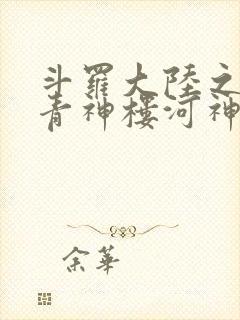 斗羅大陸之
青神樓河神
余華